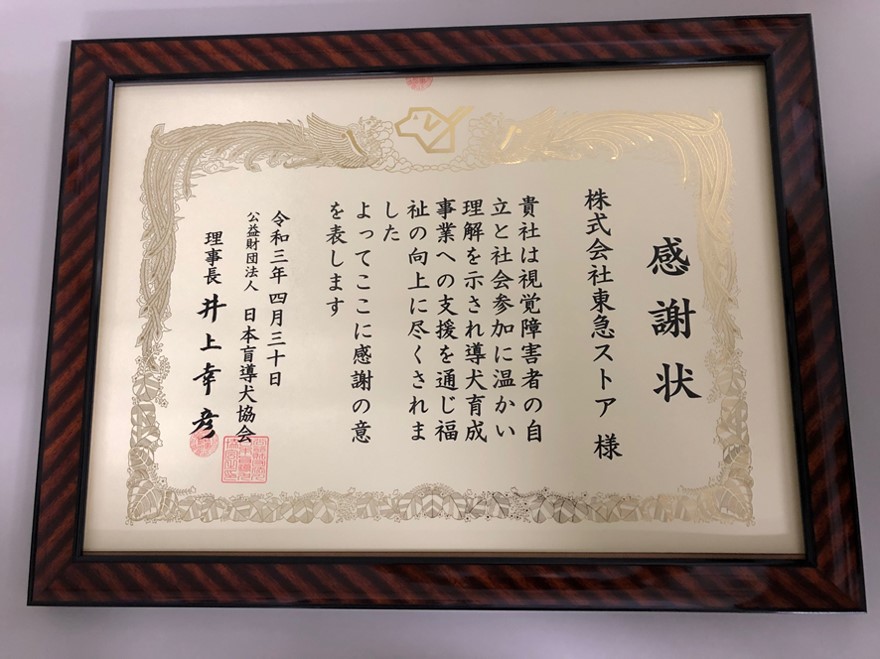 感謝状
株式会社東急ストア 様
貴社は視覚障害者の自
立と社会参加に温かい
理解を示され導犬育成
事業への支援を通じ福
祉の向上に尽くされま
した
よってここに感謝の意
を表します
令和三年四月三十日
公益財団法人 日本盲導犬協会
理事長 井上幸彦